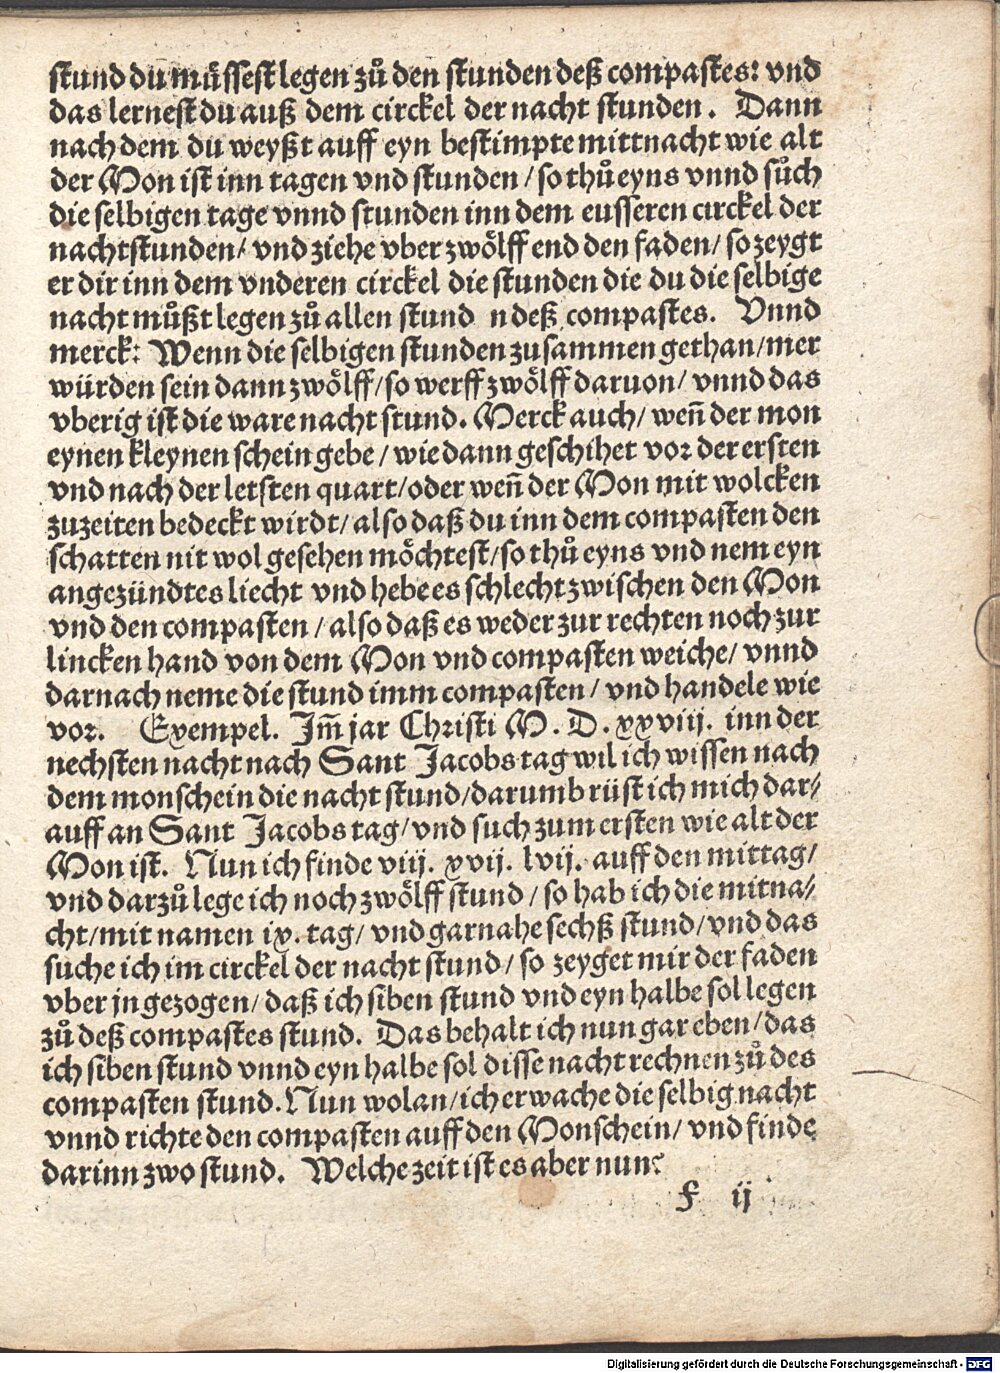 stund du müssest legen zů den stunden deß compastes: vnd
das lernest du auß dem circkel der nacht stunden. Dann
nach dem du weyßt auff eyn bestimpte mittnacht wie alt
der Mon ist inn tagen vnd stunden / so thů eyns vnnd sůch
die selbigen tage vnnd stunden inn dem eusseren circkel der
nachtstunden / vnd ziehe vber zwölff end den faden / so zeygt
er dir inn dem vnderen circkel die stunden die du die selbige
nacht můßt legen zů allen stund n deß compastes. Vnnd
merck: Wenn die selbigen stunden zusammen gethan / mer
würden sein dann zwölff / so werff zwölff daruon / vnnd das
vberig ist die ware nacht stund. Merck auch / weñ der mon
eynen kleynen schein gebe / wie dann geschihet vor der ersten
vnd nach der letsten quart / oder weñ der Mon mit wolcken
zuzeiten bedeckt wirdt / also daß du inn dem compasten den
schatten nit wol gesehen möchtest / so thů eyns vnd nem eyn
angezündtes liecht vnd hebe es schlecht zwischen den Mon
vnd den compasten / also daß es weder zur rechten noch zur
lincken hand von dem Mon vnd compasten weiche / vnnd
darnach neme die stund imm compasten / vnd handele wie
vor. Exempel. Im̃ jar Christi M. D. xxviij. inn der
nechsten nacht nach Sant Jacobs tag wil ich wissen nach
dem monschein die nacht stund / darumb rüst ich mich dar⸗
auff an Sant Jacobs tag / vnd such zum ersten wie alt der
Mon ist. Nun ich finde viij. xvij. lvij. auff den mittag /
vnd darzů lege ich noch zwölff stund / so hab ich die mitna⸗
cht / mit namen ix. tag / vnd gar nahe sechß stund / vnd das
suche ich im circkel der nacht stund / so zeyget mir der faden
vber jn gezogen / daß ich siben stund vnd eyn halbe sol legen
zů deß compastes stund. Das behalt ich nun gar eben / das
ich siben stund vnnd eyn halbe sol disse nacht rechnen zů des
compasten stund. Nun wolan / ich erwache die selbig nacht
vnnd richte den compasten auff den Monschein / vnd finde
darinn zwo stund. Welche zeit ist es aber nun?
f ij
Digitalisierung gefördert durch die Deutsche Forschungsgemeinschaft - DFG